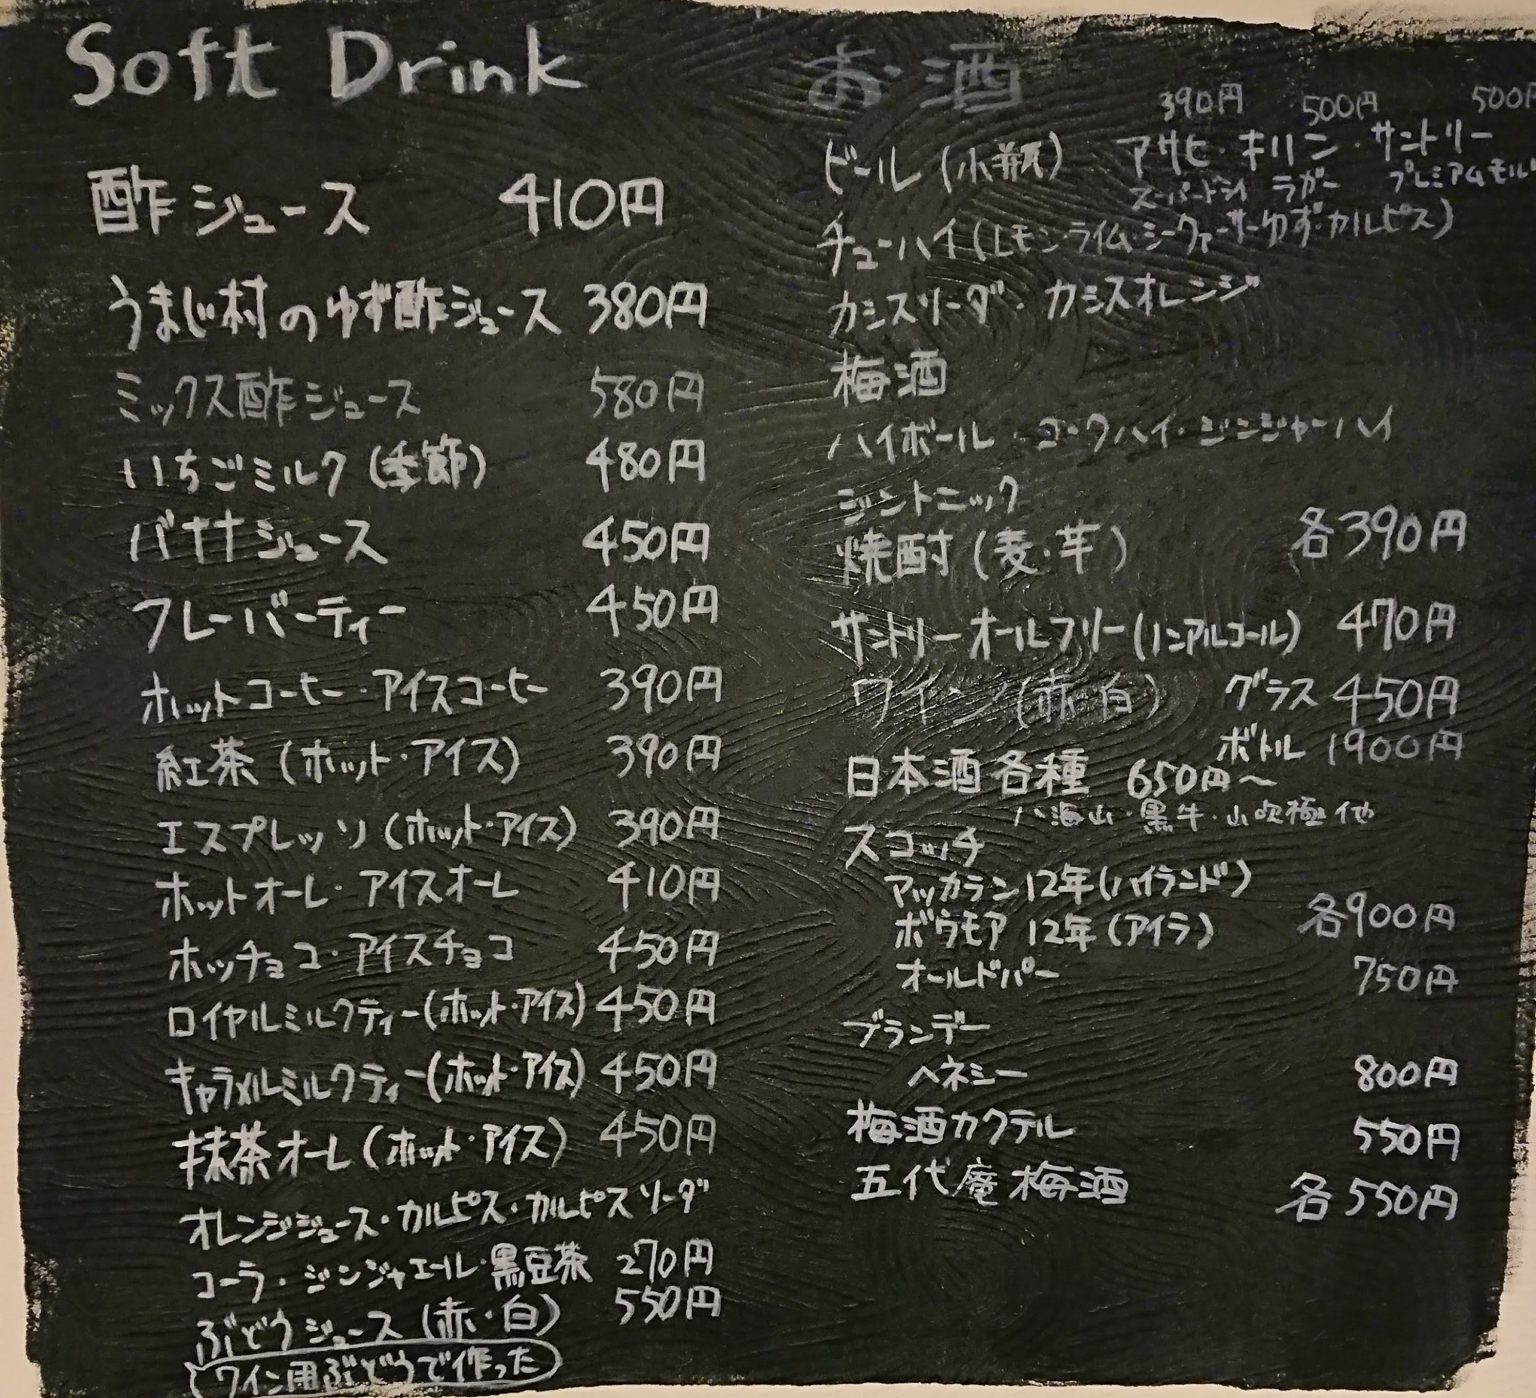 Soft Drink
酢ジュース 410円
うまじ村のゆず酢ジュース 380円
ミックス酢ジュース 580円
いちごミルク(季節) 480円
バナナジュース 450円
フレーバーティー 450円
ホットコーヒー・アイスコーヒー 390円
紅茶(ホット・アイス) 390円
エスプレッソ(ホット・アイス) 390円
ホットオーレ・アイスオーレ 410円
ホッチョコ・アイスチョコ 450円
ロイヤルミルクティー(ホット・アイス) 450円
キャラメルミルクティー(ホット・アイス) 450円
抹茶オーレ(ホット・アイス) 450円
オレンジジュース・カルピス・カルピスソーダ
コーラ・ジンジャエール・黒豆茶 270円
ぶどうジュース(赤・白) 550円
(ワイン用ぶどうで作った)
お酒
390円 500円 500円
ビール(小瓶) アサヒ・キリン・サントリー
スーパードライ ラガー プレミアムモル
チューハイ(レモン・ライム・シークァーサー・ゆず・カルピス)
カシスソーダ・カシスオレンジ
梅酒
ハイボール・コークハイ・ジンジャーハイ
ジントニック
焼酎(麦・芋) 各390円
サントリーオールフリー(ノンアルコール) 470円
ワイン(赤・白) グラス 450円
ボトル 1900円
日本酒各種 650円〜
八海山・黒牛・山吹極 他
スコッチ
マッカラン12年(ハイランド)
ボウモア 12年(アイラ) 各900円
オールドパー 750円
ブランデー
ヘネシー 800円
梅酒カクテル 550円
五代庵梅酒 各550円